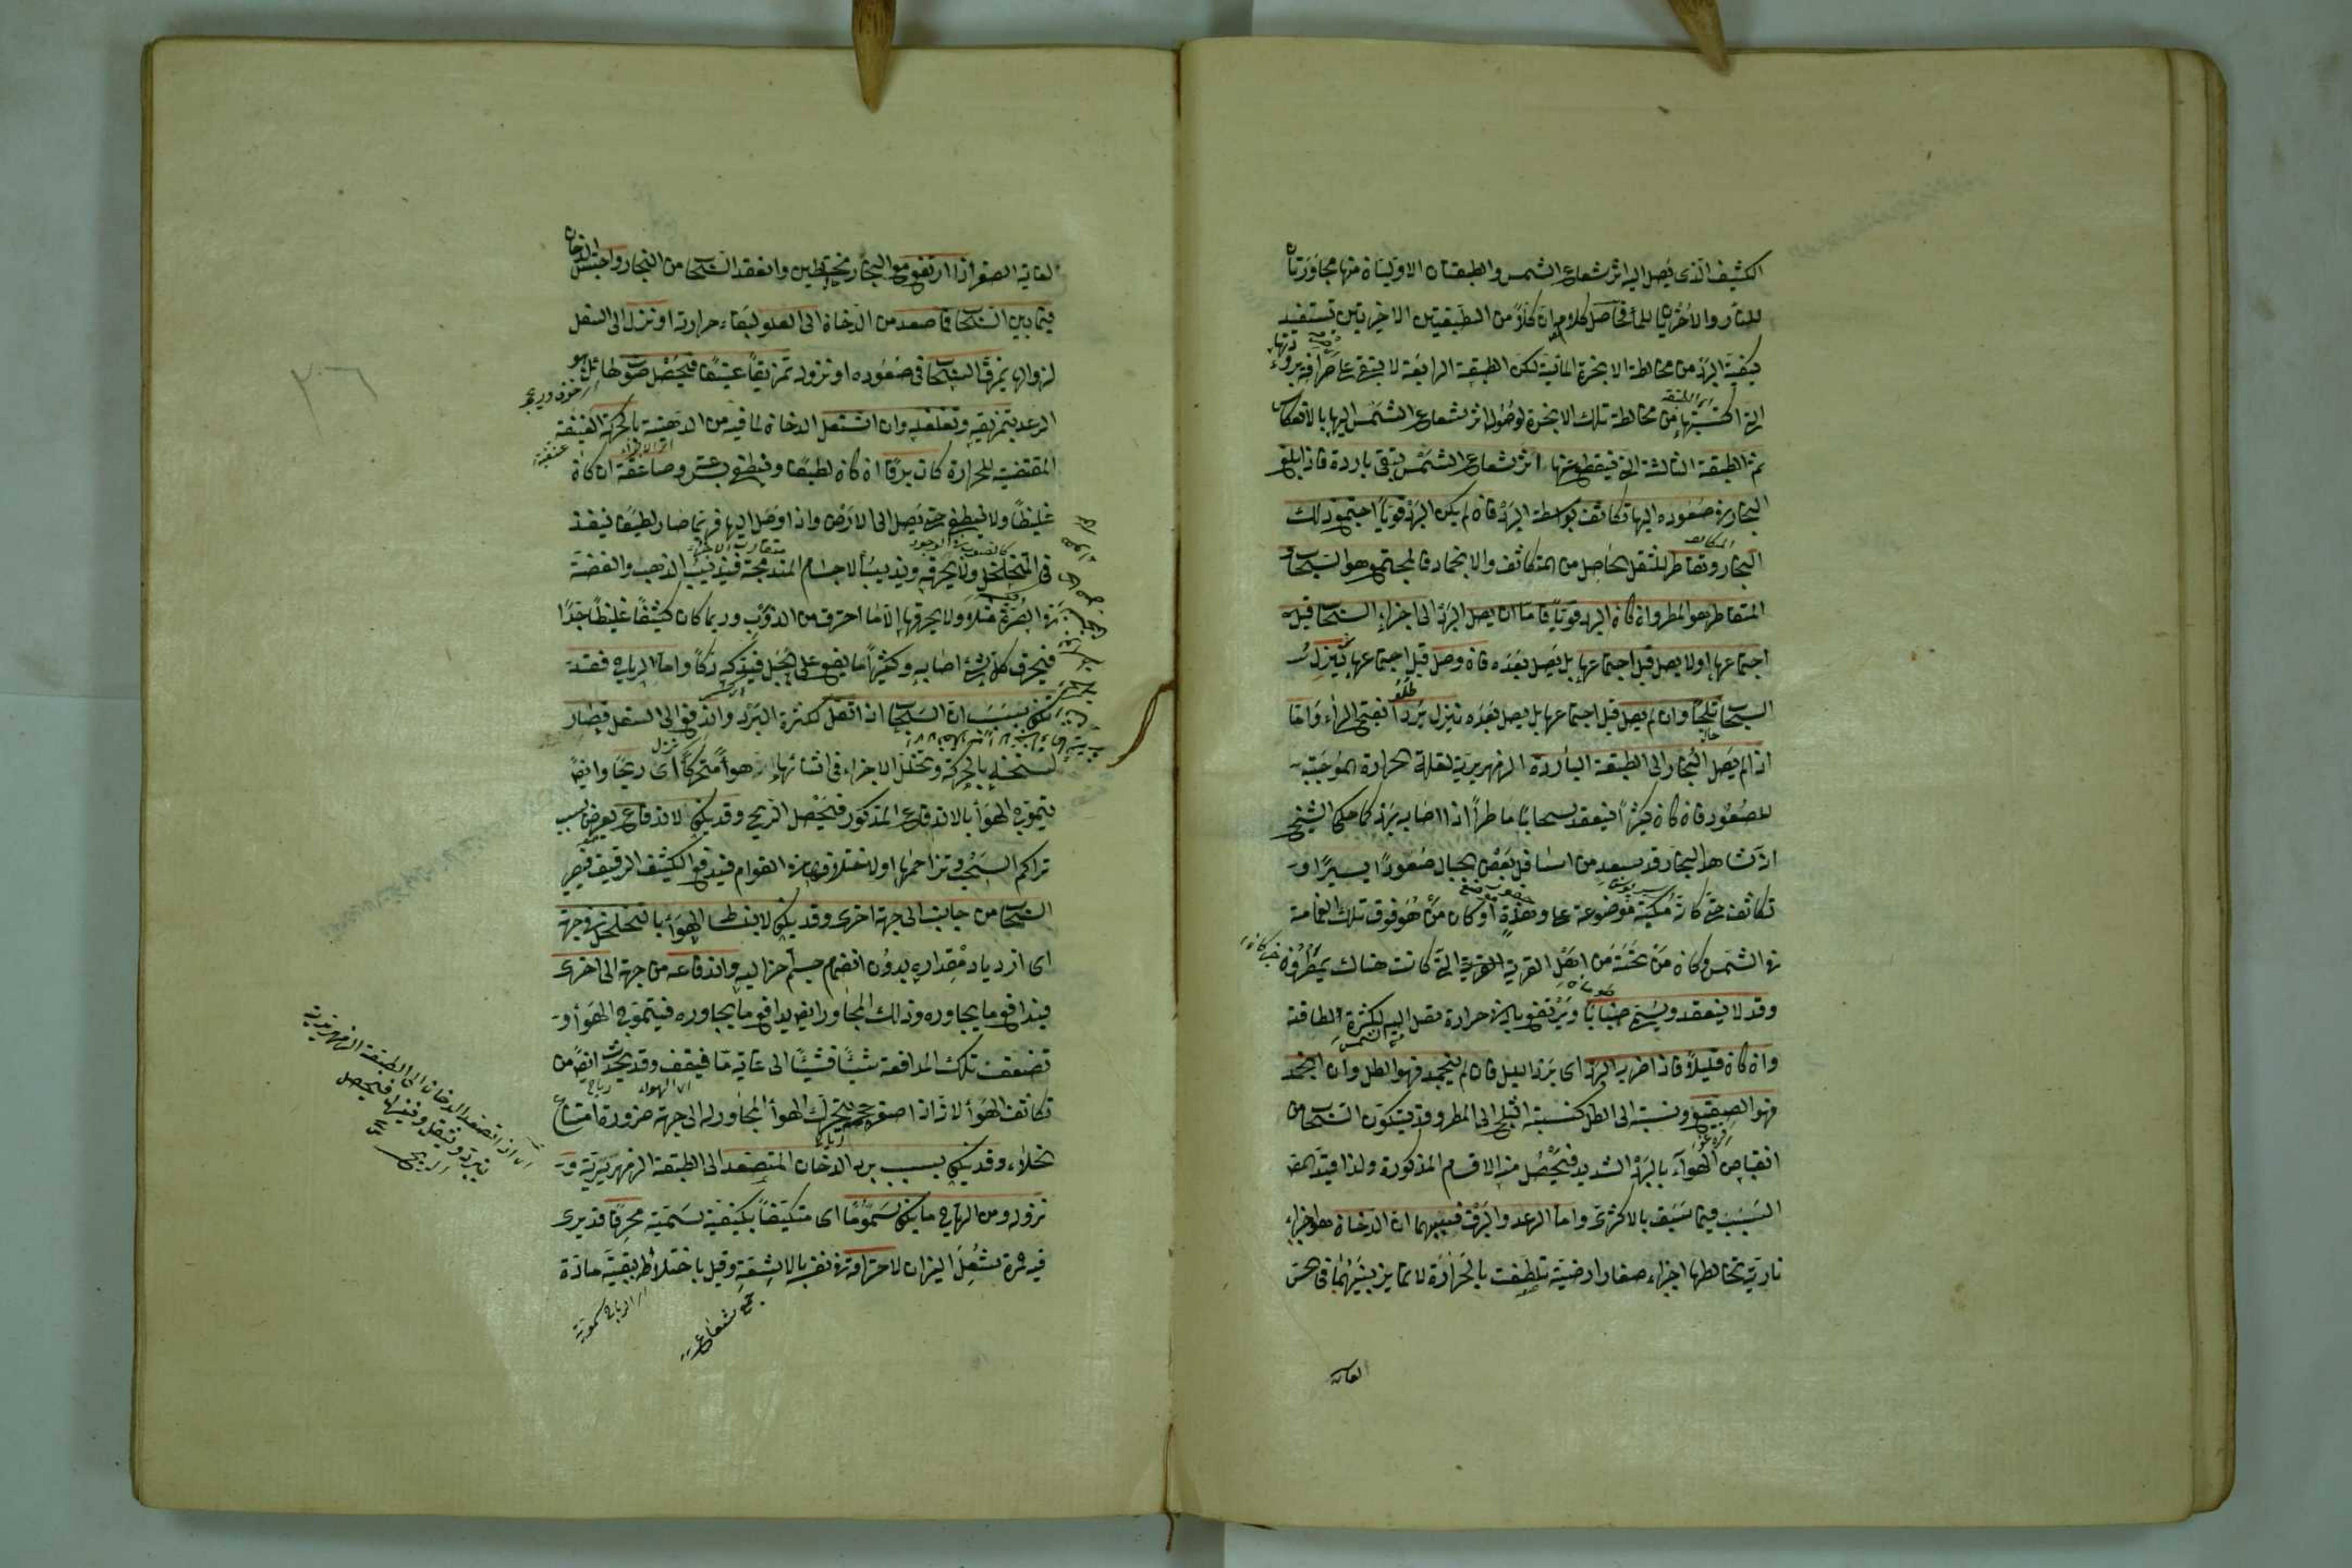 الكثيف الذى يصل اليه اثر شعاع الشمس والطبقتان الاوليان منها مجاورتان
للنار والاخريان للماء فحاصل كلامه ان كلاً من الطبقتين الاخريتين تستفيد
كيفية البرد من مخالطة الابخرة المائية لكن الطبقة الرابعة لا يبقى على صرافة برودتها
التى اكتسبتها من مخالطة تلك الابخرة لوصول اثر شعاع الشمس اليها بالانعكاس
ثم الطبقة الثالثة التى ينقطع عنها اثر شعاع الشمس يبقى باردة فاذا بلغ
البخار فى صعوده اليها تكاثف بواسطة البرد فان لم يكن البرد قوياً اجتمع ذلك
البخار وتقاطر للثقل الحاصل من التكاثف والانجماد فالمجتمع هو السحاب و
المتقاطر هو المطر وان كان البرد قوياً فاما ان يصل البرد الى اجزاء السحاب قبل
اجتماعها او لا يصل قبل اجتماعها بل يصل بعده فان وصل قبل اجتماعها ينزل
السحاب ثلجاً وان لم يصل قبل اجتماعها بل يصل بعده ينزل برداً بفتح الراء واما
اذا لم يصل البخار الى الطبقة الباردة الزمهريرية لقلة الحرارة الموجبة
للصعود فان كان كثيراً فينعقد سحاباً ماطراً اذا اصابه برد كما حكى الشيخ
انه شاهد البخار قد صعد من اسافل بعض الجبال صعوداً يسيراً و
تكاثف حتى كانه مكبة موضوعة على وهدة او كان من هو فوق تلك الغمامة
فى الشمس وكان من تحته من اهل القرية التى كانت هناك يمطرون
وقد لا ينعقد ويسمى ضباباً ويرتفع بادنى حرارة تصل اليه لكثرة لطافته
وان كان قليلاً فاذا ضربه البرد اى برد الليل فان لم ينجمد فهو الطل وان انجمد
فهو الصقيع ونسبته الى الطل كنسبة الثلج الى المطر وقد يتكون السحاب من
انقباض الهواء بالبرد الشديد فيحصل منه الاقسام المذكورة ولذا قيد المص
السبب فيما سبق بالاكثرى واما الرعد والبرق فسببهما ان الدخان هو اجزاء
نارية تخالطها اجزاء صغار ارضية تلطفت بالحرارة لا تمايز بينهما فى الحس
لغاية
لغاية الصغر اذا ارتفع مع البخار مختلطين وانعقد السحاب من البخار واحتبس الدخان
فيما بين السحاب فما صعد من الدخان الى العلو لبقاء حرارته او نزل الى السفل
لزوالها يمزق السحاب فى صعوده او نزوله تمزيقاً عنيفاً فيحصل صوت هائل هو
الرعد بتمزيقه وتغلغله وان اشتعل الدخان لما فيه من الدهنية بالحركة العنيفة
المقتضية للحرارة كان برقاً ان كان لطيفاً وينطفى بسرعة وصاعقة ان كان
غليظاً ولا ينطفى حتى يصل الى الارض واذا وصل اليها فربما صار لطيفاً ينفذ
فى المتخلخل ولا يحرقه ويذيب الاجسام المندمجة فيذيب الذهب والفضة
فى الصرة مثلاً ولا يحرقها الا ما احترق من الذوب وربما كان كثيفاً غليظاً جداً
فيحرق كل شئ اصابه وكثيراً ما يقع على الجبل فيدكه دكاً واما الرياح فقد
يكون بسبب ان السحاب اذا ثقل لكثرة البرد واندفع الى السفل فصار
لتسخنه بالحركة وتخلل الاجزاء فى اثنائها هواء متحركاً اى ريحاً وايضاً
يتموج الهواء بالاندفاع المذكور فيحصل الريح وقد يكون لاندفاع يعرض بسبب
تراكم السحب وتزاحمها او لاختلاف قوامها فيدفع الكثيف الرقيق فيصير
السحاب من جانب الى جهة اخرى وقد يكون لانبساط الهواء بالتخلخل فى جهة
اى ازدياد مقداره بدون انضمام جسم آخر اليه واندفاعه من جهة الى اخرى
فيدافع ما يجاوره وذلك المجاور ايضا يدافع ما يجاوره فيتموج الهواء و
تضعف تلك المدافعة شيئاً فشيئاً الى غاية ما فيقف وقد يحدث ايضاً من
تكاثف الهواء لانه اذا صغر حجمه يتحرك الهواء المجاور له الى جهته ضرورة امتناع
الخلاء وقد يكون بسبب برد الدخان المتصعد الى الطبقة الزمهريرية و
نزوله ومن الرياح ما يكون سموماً اى متكيفاً بكيفية سمية محرقاً قد يرى
فيه حمرة شعل النيران لاحتراقه فى نفسه بالاشعة وقيل باختلاطه ببقية مادة
اى اذا تصعد الدخان الى الطبقة الزمهريرية
يبرد ويثقل وينزل فيحصل
الريح
جمع شعاع